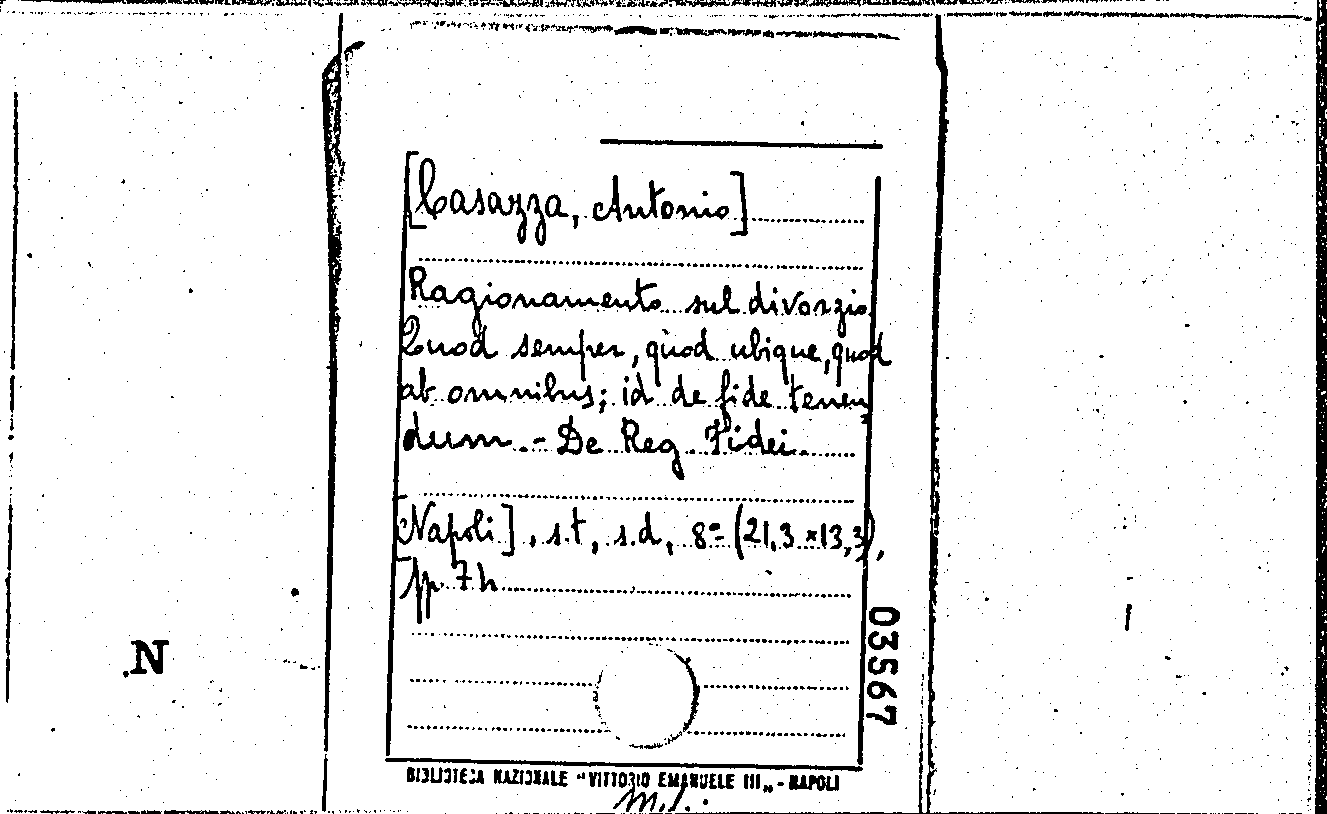 [Casazza, Antonio]
Ragionamento sul divorzio
Quod semper, quod ubique, quod
ab omnibus; id de fide tenen
dum.- De Reg. Fidei.
[Napoli], s.t, s.d, 8º (21,3 x 13,3),
pp.
03567
N
BIBLIOTECA NAZIONALE "VITTORIO EMANUELE III„ - NAPOLI